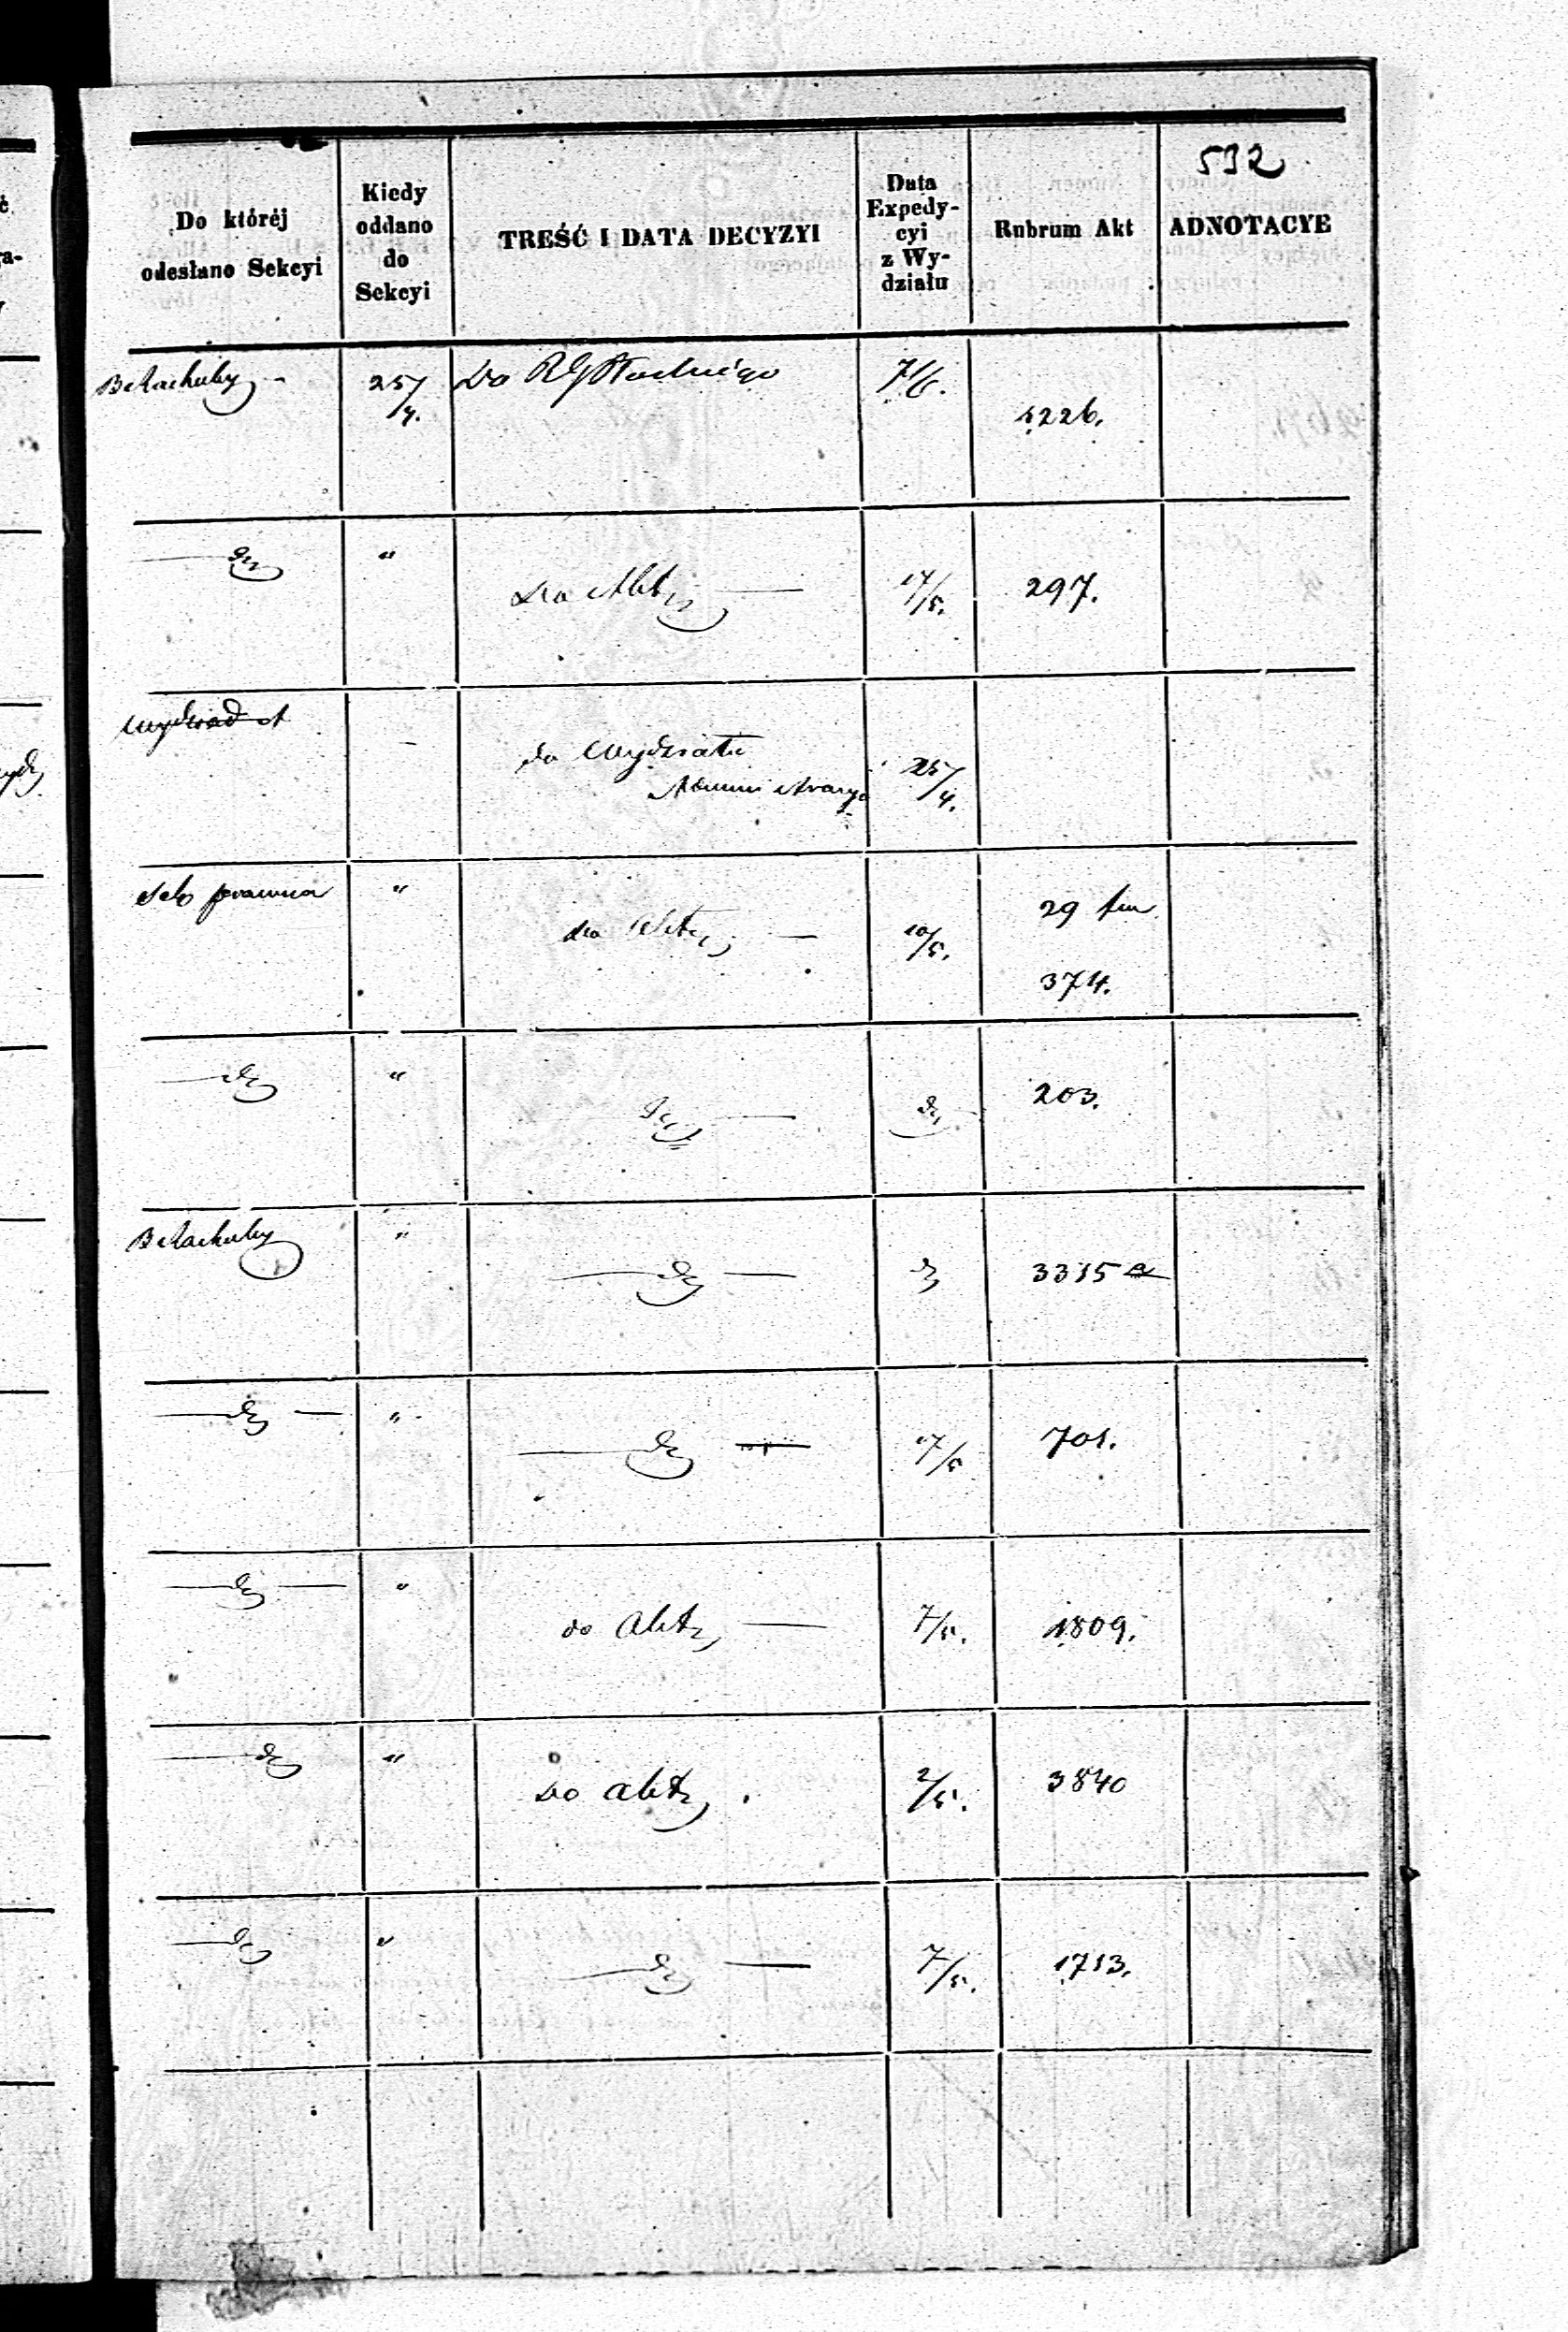 532
Do któréj
odesłano Sekcyi
Kiedy
oddano
do
Sekcyi
TREŚĆ I DATA DECYZYI
Data
Expedy-
cyi
z Wy-
działu
Rubrum Akt
ADNOTACYE
25/4. Do 7/6.
1226.
" Do Akt 17/5. 297.
Wydział A
do Wydziału 25/4.
Administracyj
Sek prawna " do Akt 10/5. 29 fun
374.
dy " dy dy 203.
" dy dy 3315 a
dy " dy 17/5 701.
dy " do Akt 7/5. 1809.
dy " Do akt 2/5. 3840
dy " dy 7/5. 1713.